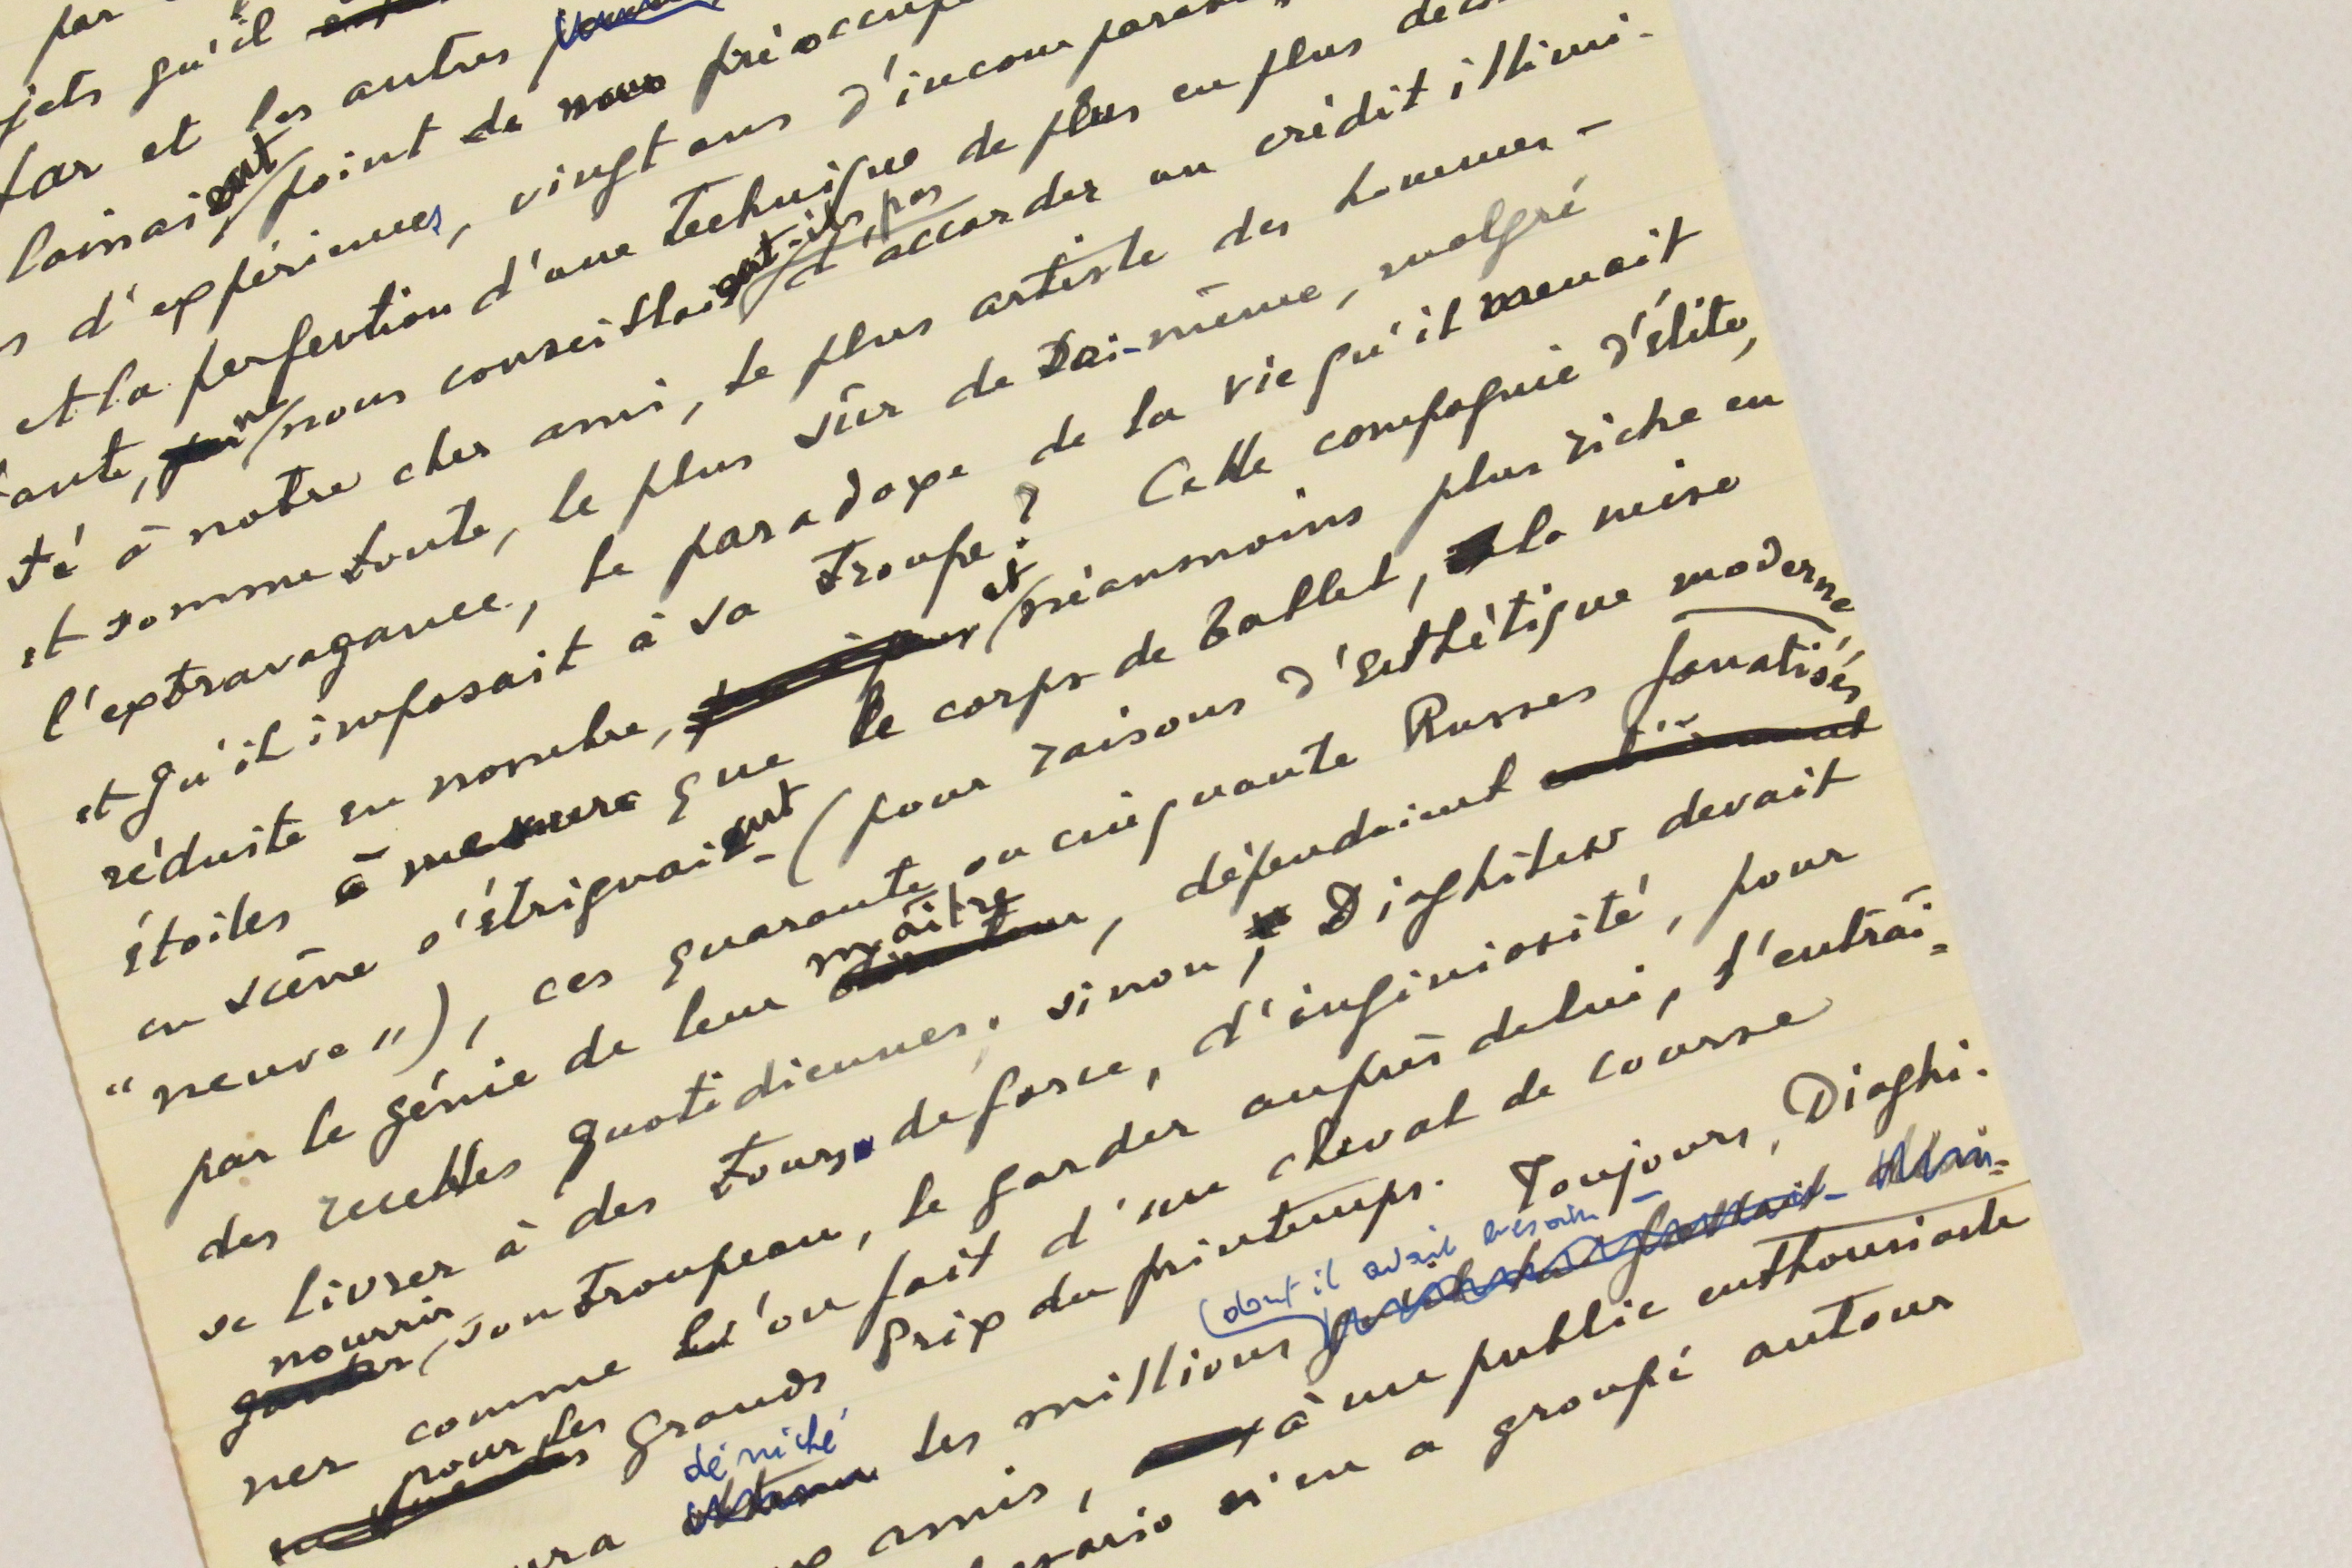 par
jets qu'il
et les autres
point de nous
s d'expériences, vingt ans d'incompara
et la perfection d'une technique de plus en plus
ne nous conseillaient-ils pas d'accorder un crédit illimi-
té à notre cher ami, le plus artiste des hommes -
et somme toute, le plus sûr de soi-même, malgré
l'extravagance, le paradoxe de la vie qu'il menait
et qu'il imposait à sa troupe? Cette compagnie d'élite,
réduite en nombre, et néanmoins plus riche en
étoiles à mesure que le corps de ballet, la mise
en scène s'étriquaient - (pour raisons d'esthétique moderne
"neuve"), ces quarante ou cinquante Russes fanatisés
par le génie de leur maître, défendaient
des recettes quotidiennes. sinon, Diaghilew devait
se livrer à des tours de force, d'ingéniosité, pour
nourrir son troupeau, le garder auprès de lui, l'entraî-
ner comme l'on fait d'un cheval de course
pour les Grands Prix du printemps. Toujours, Diaghi-
ura déniché les millions (dont il avait besoin -
amis, à un public enthousiaste
sario n'en a groupé autour